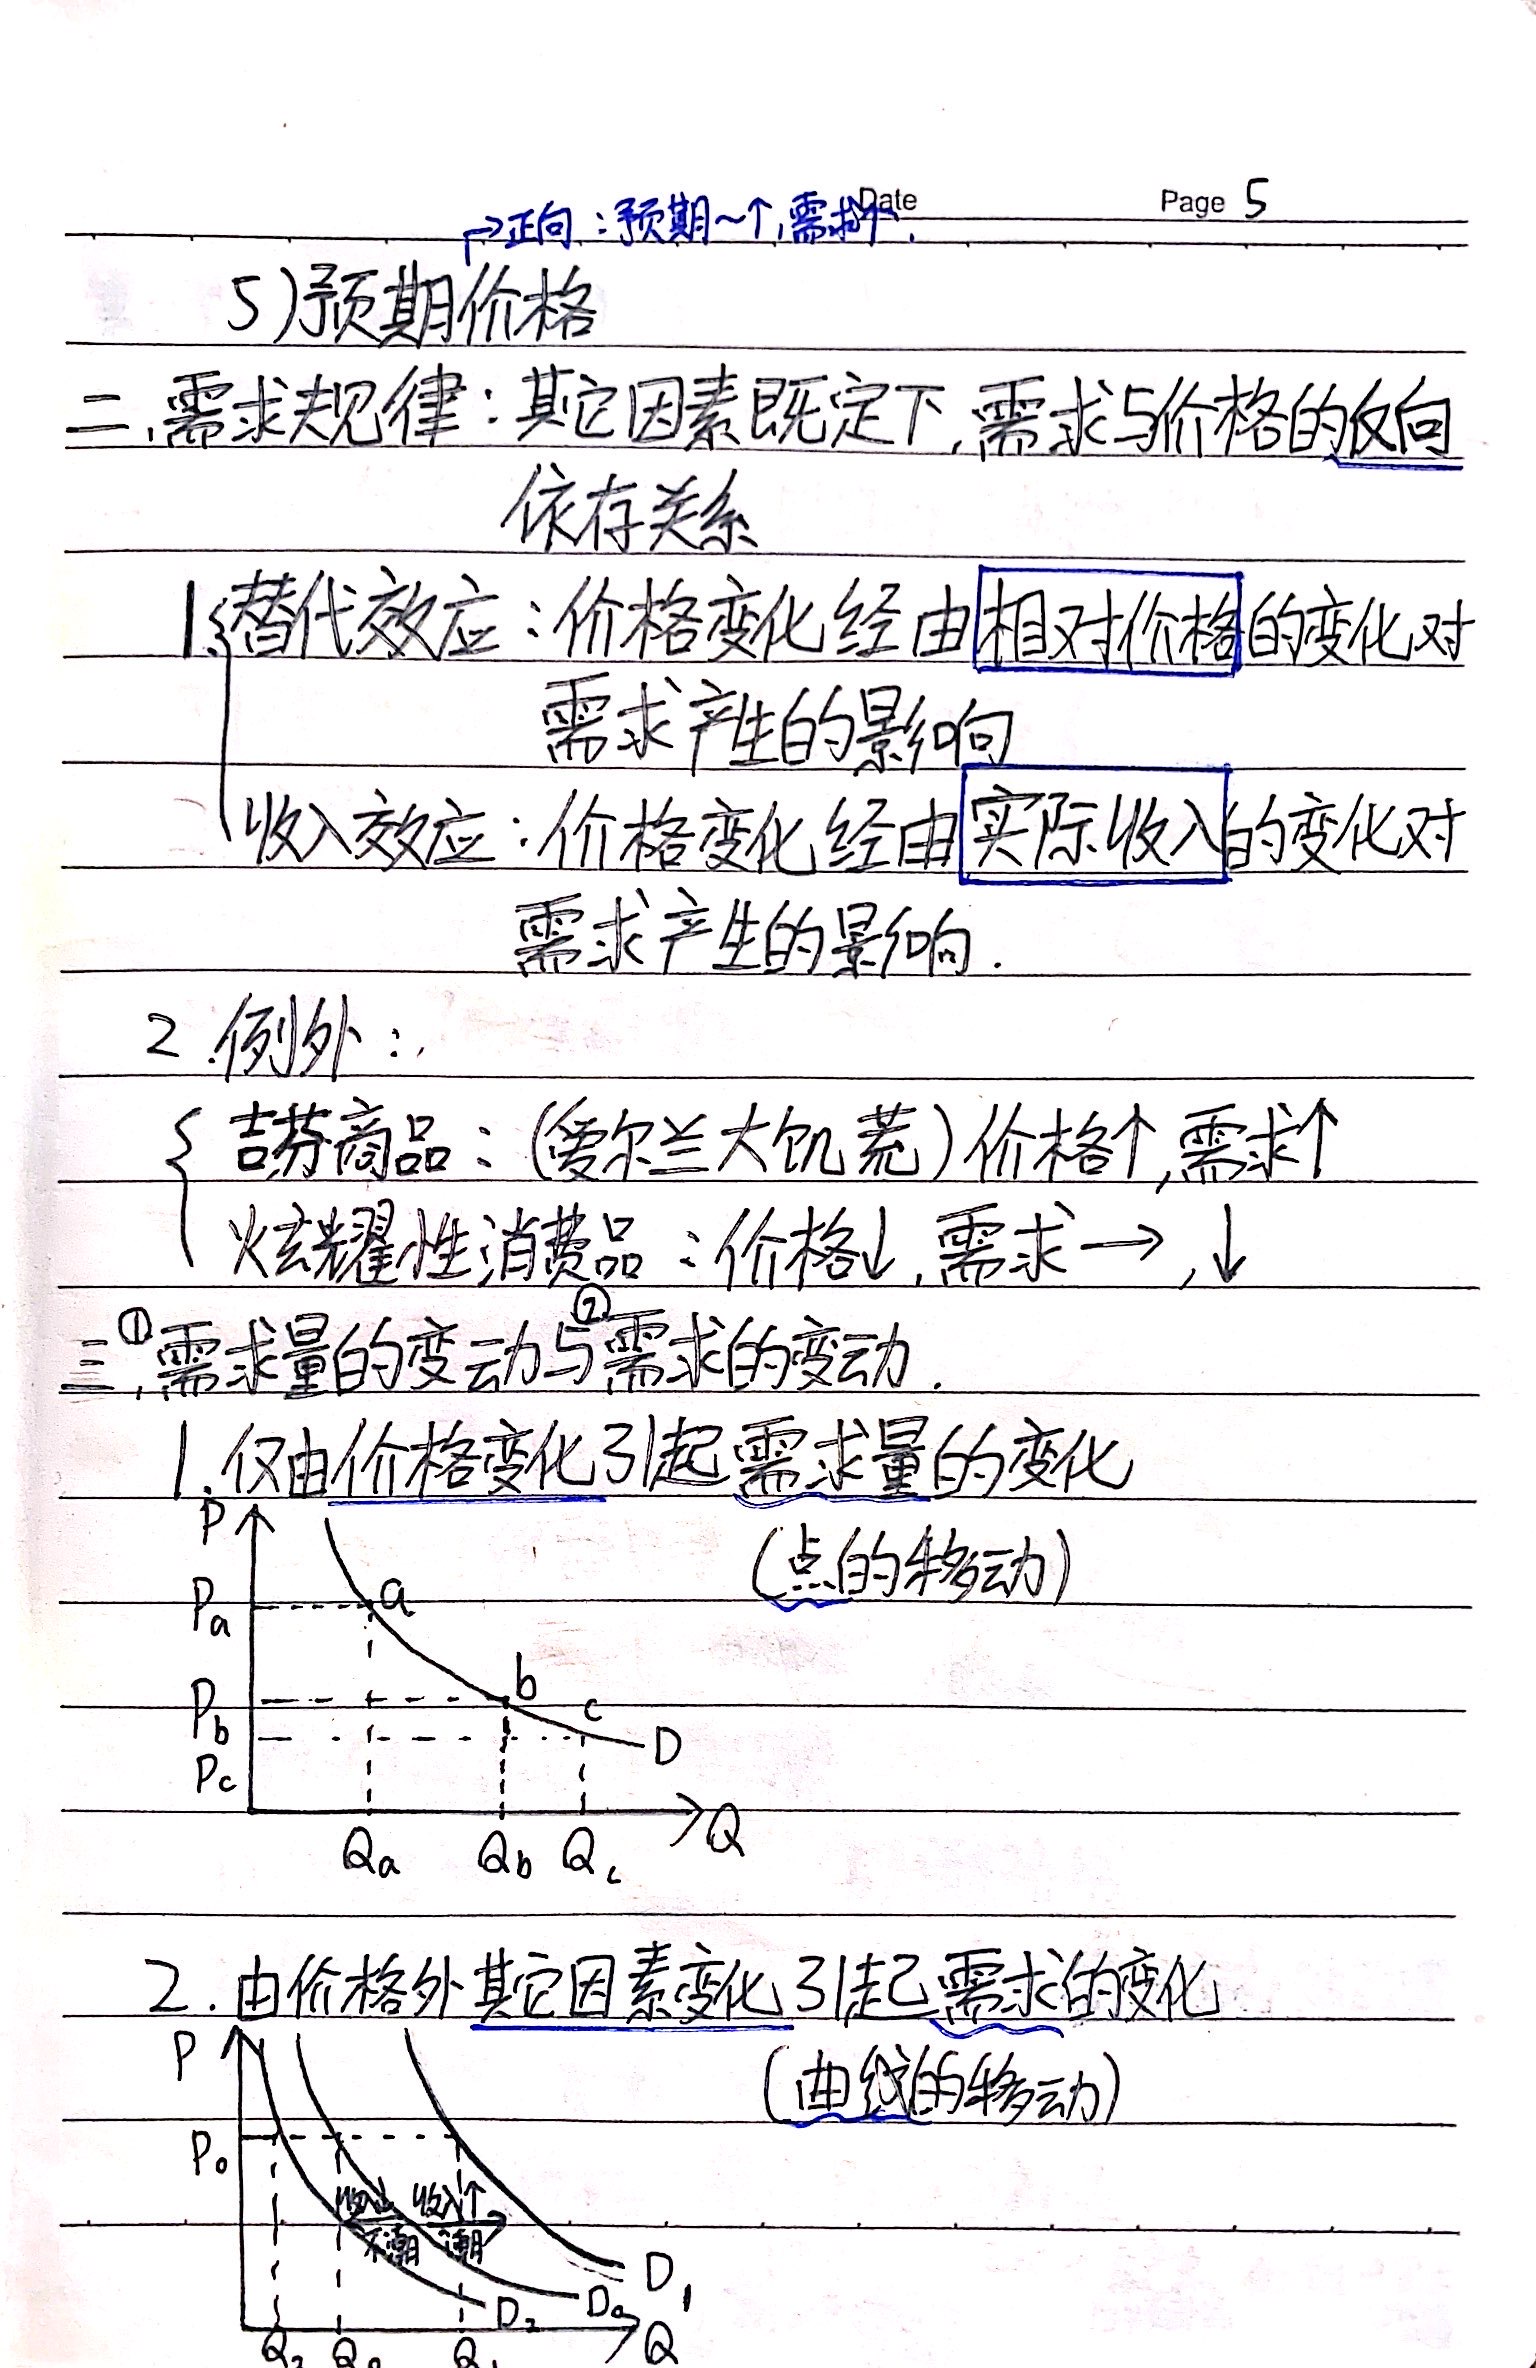 Date
Page 5
→正向：预期~↑，需求↑.
5)预期价格
二、需求规律：其它因素既定下，需求与价格的反向
依存关系
1.替代效应：价格变化经由相对价格的变化对
需求产生的影响
收入效应：价格变化经由实际收入的变化对
需求产生的影响.
2.例外：
吉芬商品：(爱尔兰大饥荒)价格↑,需求↑
炫耀性消费品：价格↓,需求→,↓
三、①需求量的变动与②需求的变动.
1.仅由价格变化引起需求量的变化
(点的移动)
P
Pa
a
Pb
b
c
Pc
D
Q
Qa Qb Qc
2.由价格外其它因素变化引起需求的变化
(曲线的移动)
P
P₀
收入↓ 收入↑
不潮 潮
D₁
D₂ D₀
Q
Q₂ Q₀ Q₁